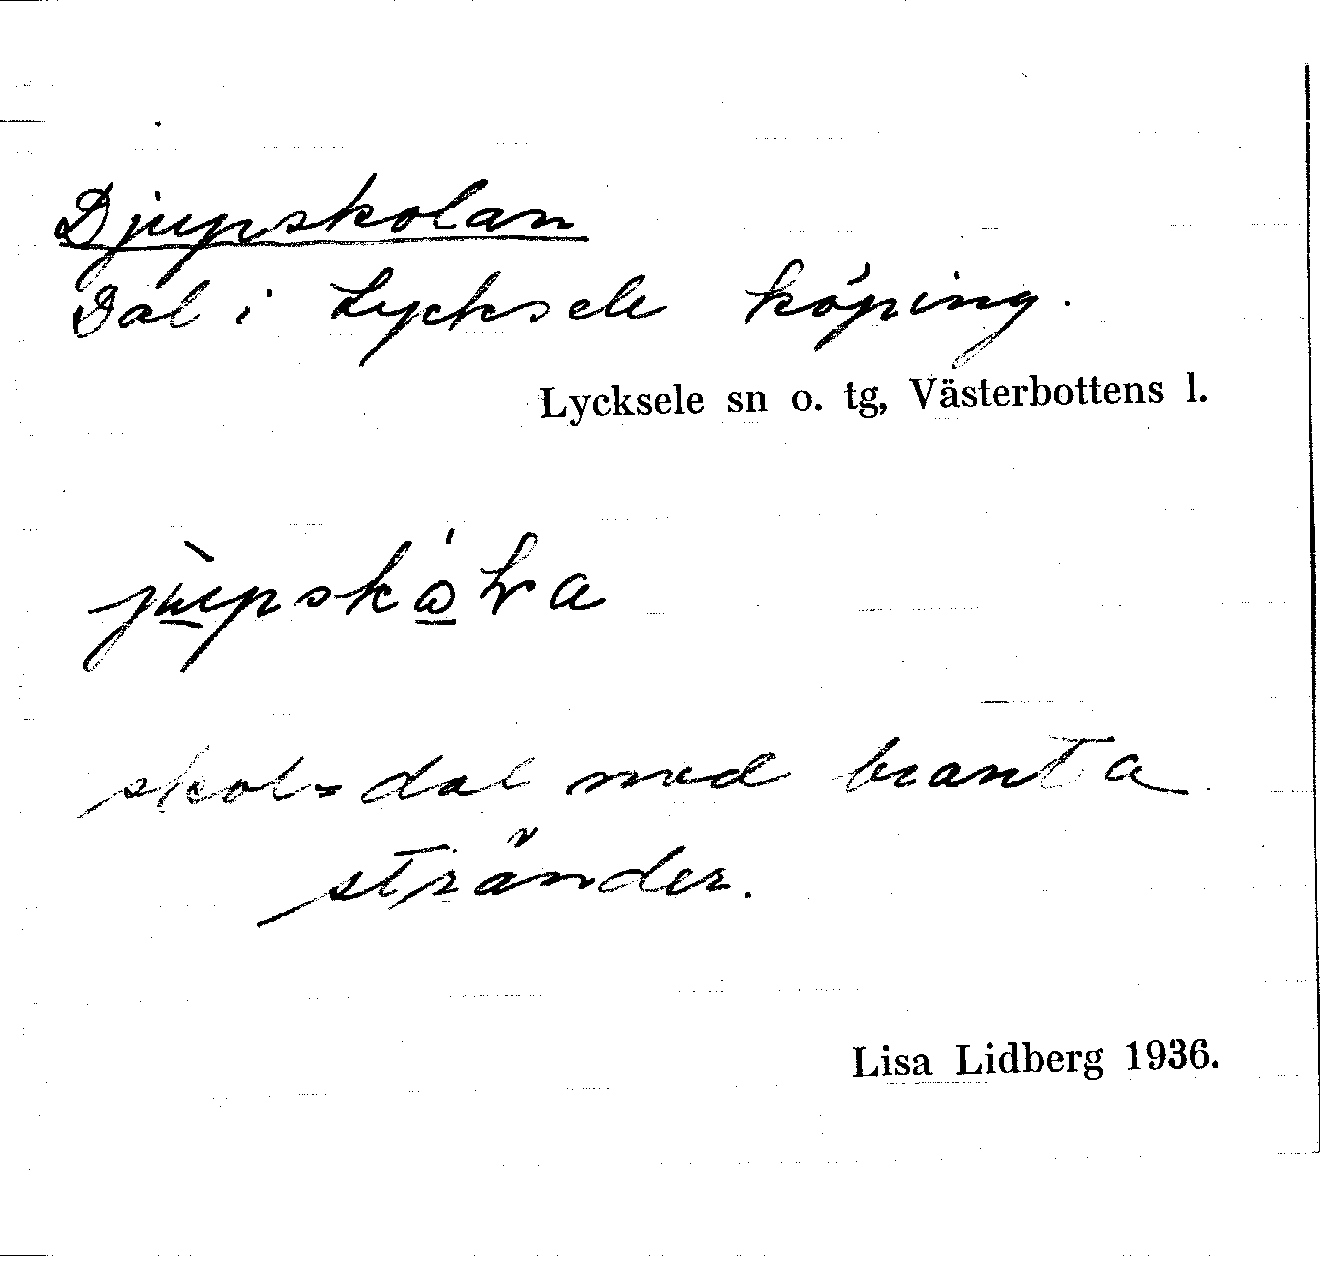 Djupskolan
Dal i Lycksele köping.
Lycksele sn o. tg, Västerbottens l.
skol = dal med branta
stränder.
Lisa Lidberg 1936.